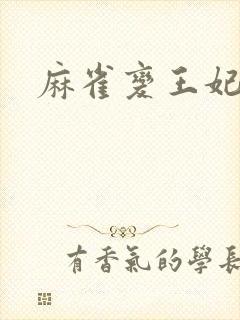 麻雀變王妃
有香氣的學長